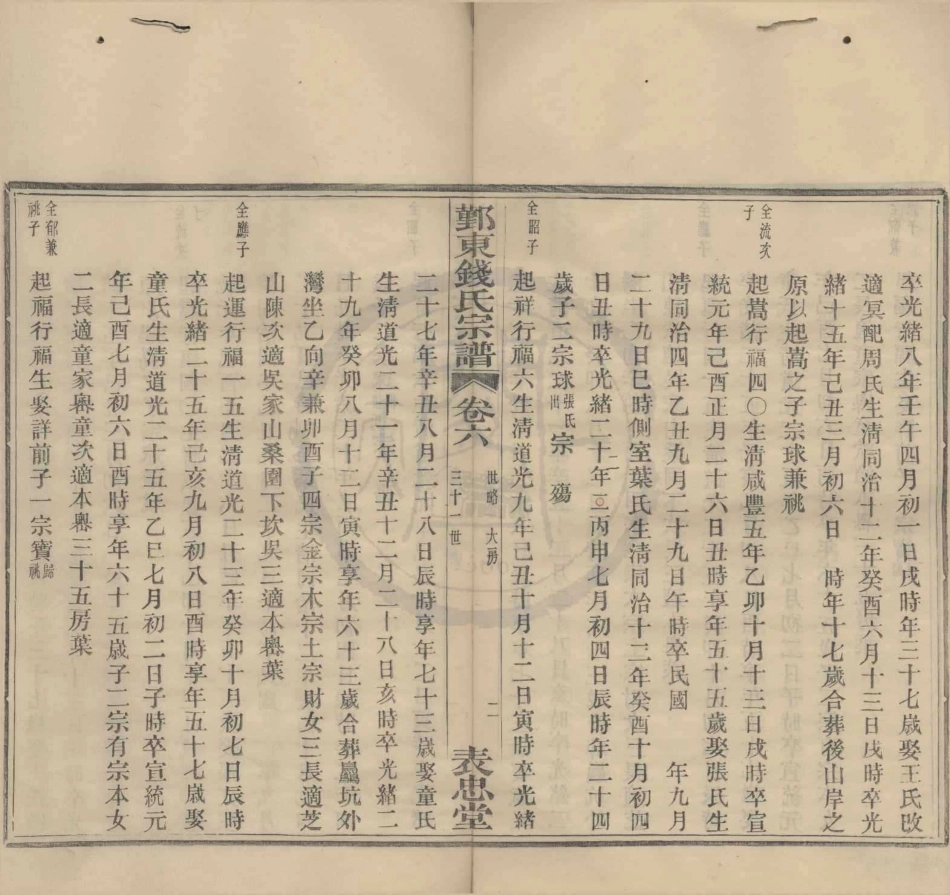 卒光緒八年壬午四月初一日戌時年三十七歲娶王氏改
適冥配周氏生淸同治十二年癸酉六月十三日戌時卒光
緒十五年己丑三月初六日 時年十七歲合葬後山岸之
原以起嵩之子宗球兼祧
仝流次子
起嵩行福四〇生淸咸豐五年乙卯十月十三日戌時卒宣
統元年己酉正月二十六日丑時享年五十五歲娶張氏生
淸同治四年乙丑九月二十九日午時卒民國 年九月
二十九日巳時側室葉氏生淸同治十二年癸酉十月初四
日丑時卒光緒二十年丙申七月初四日辰時年二十四
歲子二宗球張氏出宗 殤
仝昭子
起祥行福六生淸道光九年己丑十月十二日寅時卒光緒
鄞東錢氏宗譜 卷六 世略 大房 三十一世 二 表忠堂
二十七年辛丑八月二十八日辰時享年七十三歲娶童氏
生淸道光二十一年辛丑十二月二十八日亥時卒光緒二
十九年癸卯八月十二日寅時享年六十三歲合葬龞坑外
灣坐乙向辛兼卯酉子四宗金宗木宗土宗財女三長適芝
山陳次適吳家山桑園下坎吳三適本嶴葉
仝應子
起運行福一五生淸道光二十三年癸卯十月初七日辰時
卒光緒二十五年己亥九月初八日酉時享年五十七歲娶
童氏生淸道光二十五年乙巳七月初二日子時卒宣統元
年己酉七月初六日酉時享年六十五歲子二宗有宗本女
二長適童家嶴童次適本嶴三十五房葉
仝郁兼祧子
起福行福生娶詳前子一宗寶歸祧